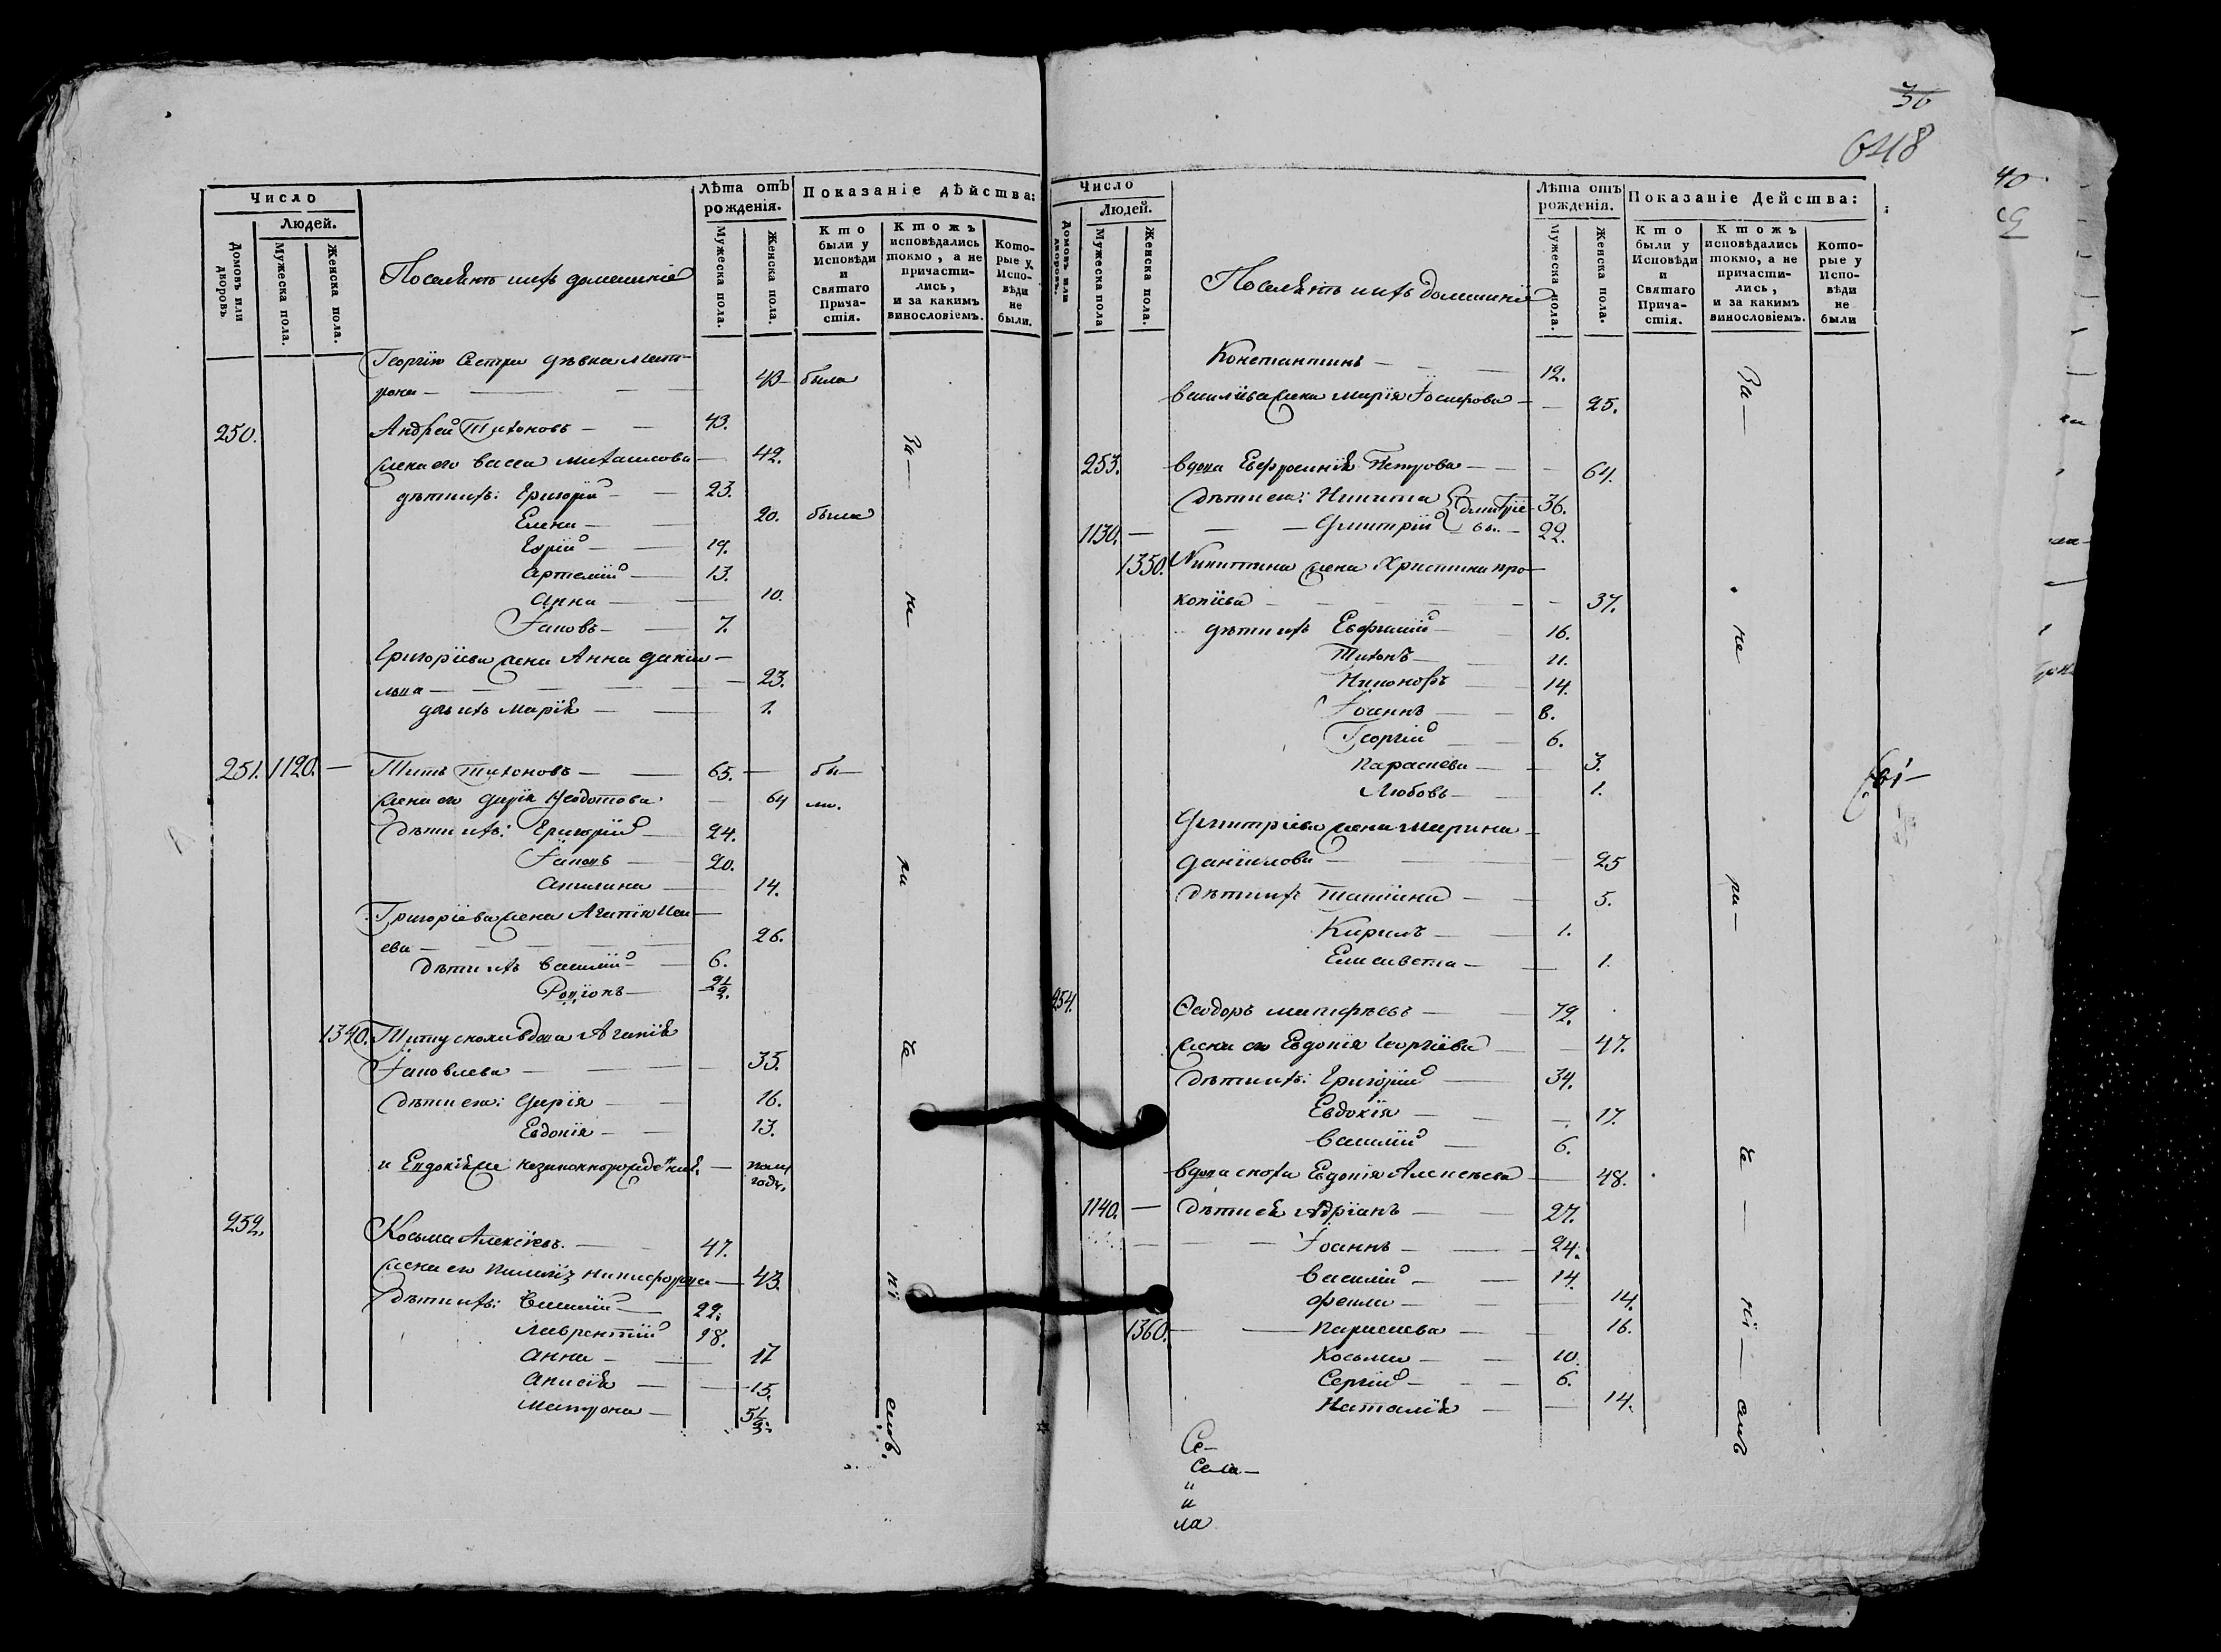 Число
Людей.
Домовъ или дворовъ
Мужеска пола.
Женска пола.
Поселянъ ихъ домашніе
Лѣта отъ рожденія.
Мужеска пола.
Женска пола.
Показаніе дѣйства:
Кто были у Исповѣди и Святаго Причастія.
Ктожъ исповѣдались токмо, а не причастились, и за какимъ винословіемъ.
Которые у Исповѣди не были.
Георгію Сестра дѣвка Мат-
рона — 43 была
250. Андрей Тихоновъ — 43.
жена его Васса Михаилова — 42.
дѣти ихъ: Григорій — 23.
Елена — 20. была
Гурій — 19.
Артемій — 13.
Анна — 10.
Іаковъ — 7.
Григоріева жена Анна Даніи-
лова — 23.
дочь ихъ Марія — 1.
251. 1120. — Титъ Тихоновъ — 65. — бы-
жена его Дарія Ѳеодотова — 64 ли.
Дѣти ихъ: Григорій — 24.
Іаковъ — 20.
Акилина — 14.
Григоріева жена Агапія
ева — 26.
Дѣти ихъ Василій — 6.
Родіонъ — 2½.
1340. Титу сноха вдова Агапія
Іаковлева — 35.
Дѣти ея: Дарія — 16.
Евдокія — 13.
и Евдокіи незаконнорожденная — полугода.
252. Косьма Алексіевъ. — 47.
жена его Никифорова — 43.
дѣти ихъ: Василій — 22.
Лаврентій — 18.
Анна — 17
Анисія — 15.
Матрона — 5½.
За — не ра че ніемъ.
36
648
Число
Людей.
Домовъ или дворовъ.
Мужеска пола
Женска пола.
Поселянъ ихъ домашніе
Лѣта отъ рожденія.
Мужеска пола.
Женска пола.
Показаніе Действа:
Кто были у Исповѣди и Святаго Причастія.
Ктожъ исповѣдались токмо, а не причастились, и за какимъ винословіемъ.
Которые у Исповѣди не были
Константинъ — 12.
Василіева жена Марія Іосифова — 25.
253. вдова Евфросинія Петрова — 64.
Дѣти ея: Никита Дмитріе- 36.
1130. — Дмитрій вы. — 22.
1350. Никитина жена Христина Про-
копіева — 37.
дѣти ихъ Евфимій — 16.
Тихонъ — 11.
Никаноръ — 14.
Іоаннъ — 8.
Георгій — 6.
Параскева — 3.
Любовь — 1.
Дмитріева жена Марина
Даніилова — 25
Дѣти ихъ Татіана — 5.
Кирилъ — 1.
Елисавета — 1.
254. Ѳеодоръ Матфѣевъ — 72.
жена его Евдокія Георгіева — 47.
Дѣти ихъ: Григорій — 34.
Евдокія — 17.
Василій — 6.
вдова сноха Евдокія Алексѣева — 48.
1140. — Дѣти ея Адріанъ — 27.
Іоаннъ — 24.
Василій — 14.
Фекла — 14.
1360. — Параскева — 16.
Косьма — 10.
Сергій — 6.
Наталія — 14.
За — не ра — че — ні — емъ
Се-
Села-
и
и
ла
40